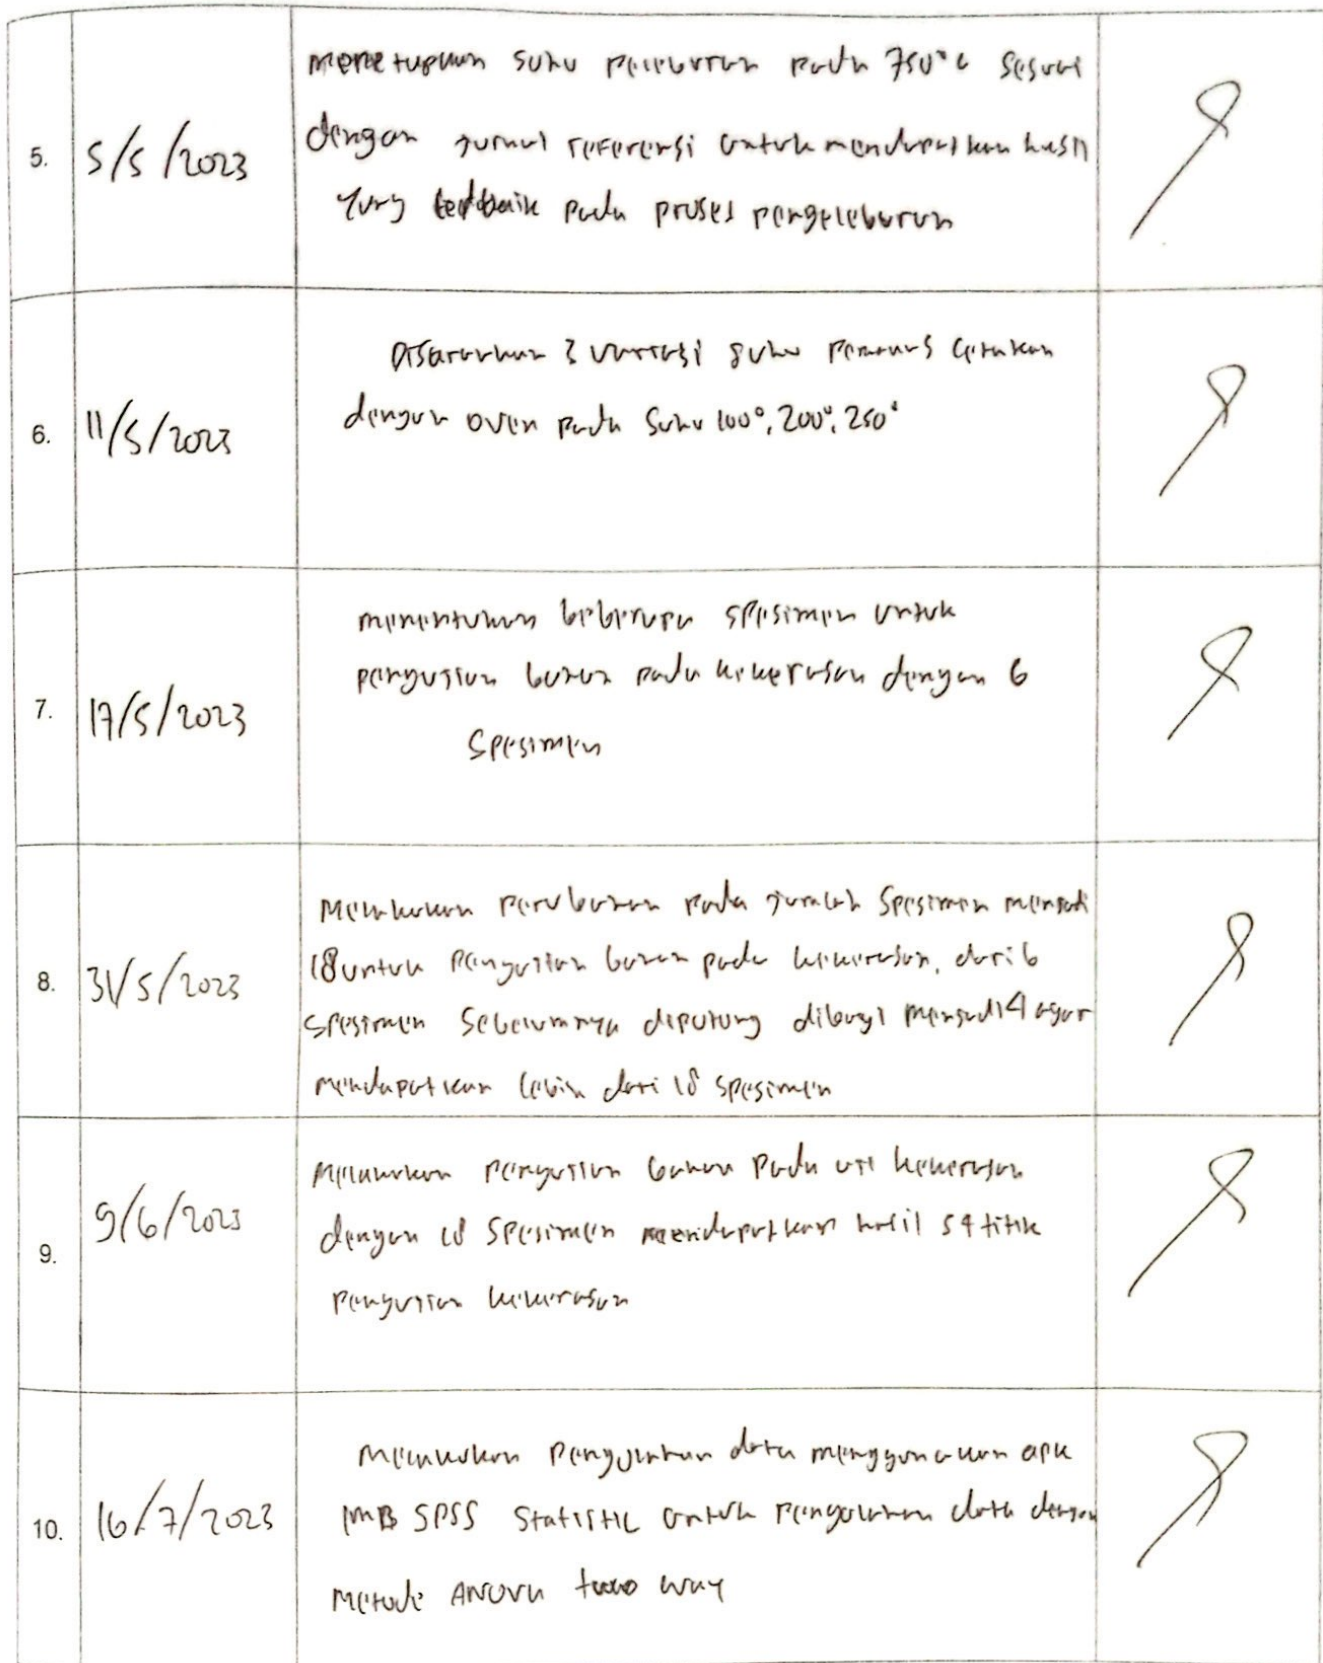 5.
5/5/2023
menetapkan suhu peleburan pada 750°C sesuai
dengan jurnal referensi untuk mendapatkan hasil
yang terbaik pada proses pengeleburan
6.
11/5/2023
Disarankan 3 variasi suhu pemanas cetakan
dengan oven pada suhu 100°, 200°, 250°
7.
17/5/2023
menentukan beberapa spesimen untuk
pengujian bahan pada kekerasan dengan 6
spesimen
8.
31/5/2023
Melakukan perubahan pada jumlah spesimen menjadi
18 untuk pengujian bahan pada kekerasan, dari 6
spesimen sebelumnya dipotong dibagi menjadi 4 agar
mendapatkan lebih dari 18 spesimen
9.
9/6/2023
Melakukan pengujian bahan pada uji kekerasan
dengan 18 spesimen mendapatkan hasil 54 titik
pengujian kekerasan
10.
16/7/2023
Melakukan pengolahan data menggunakan apk
IMB SPSS Statistic untuk pengolahan data dengan
metode ANOVA two way